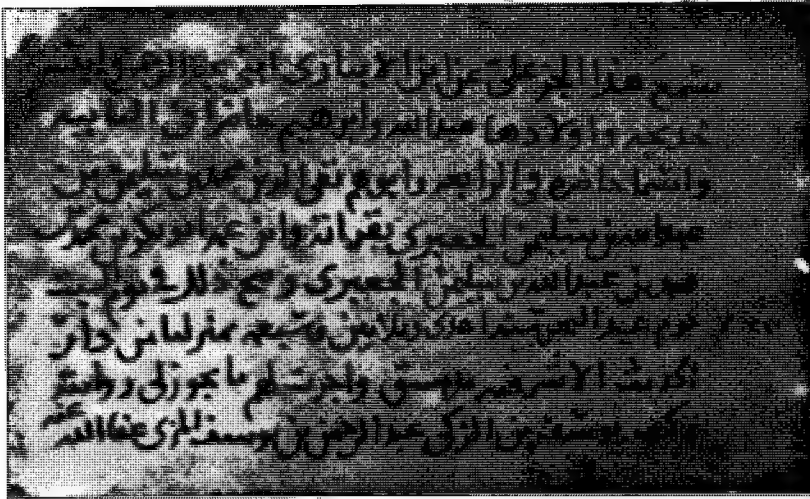 سمع هذا الجز على عن ابن الابناري ابني عبد الرحمن
خديجه واولادها عبدالله وابرهيم حاضرا في الثانيه
واسما حاضره في الرابعه وابوهم تقي الدين محمد بن سليمن بن
عبدالله بن سليمن الجعبري بقراته وابن عمه ابو بكر بن محمد
بن عبدالله بن سليمن الجعبري وصح ذلك في يوم السبت
يوم احدى وثلاثين وسبعمه بمنزلنا من دار
الحديث الاشرفيه بدمشق واجزت لهم ما يجوز لي روايته
وكتب يوسف بن الزكي عبد الرحمن بن يوسف المزي عفا الله عنه